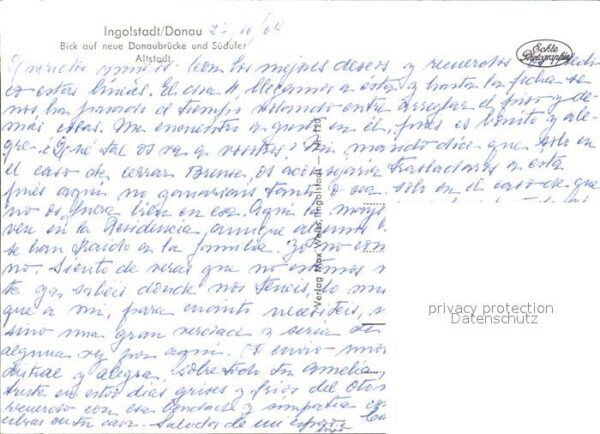 Ingolstadt/Donau 27/10/64
Blick auf neue Donaubrücke und Südufer
Altstadt
Echte Photographie
Queridos amigos: Con los mejores deseos y recuerdos os dedico
estas líneas. El día 4, llegamos a ésta y hasta la fecha se
nos ha pasado el tiempo volando entre arreglar el piso y de-
más cosas. Me encuentro a gusto en él, pues es bonito y ale-
gre. ¿Qué tal os va a vosotros? Mi marido dice que solo en
el caso de cerrar os aconsejaría trasladaros a ésta
pues aquí no ganaríais tanto o sea, sólo en el caso de que
no os fuera bien en esa. Aquí la mayo
ven en la Residencia, aunque algunos
se han traído en la familia. Yo no
no. Siento de veras que no estemos
te ya sabéis dónde nos tenéis, lo
que a mi, para cuanto necesitéis,
sino una gran verdad y sería
alguna vez por aquí. Os envío
y alegra, sobre todo
triste en estos días grises y fríos del Oto
recuerdo con esa bondad y simpatía
en su casa. Saludos de mi esposo
Verlag Max Weiss, Ingolstadt —
privacy protection
Datenschutz